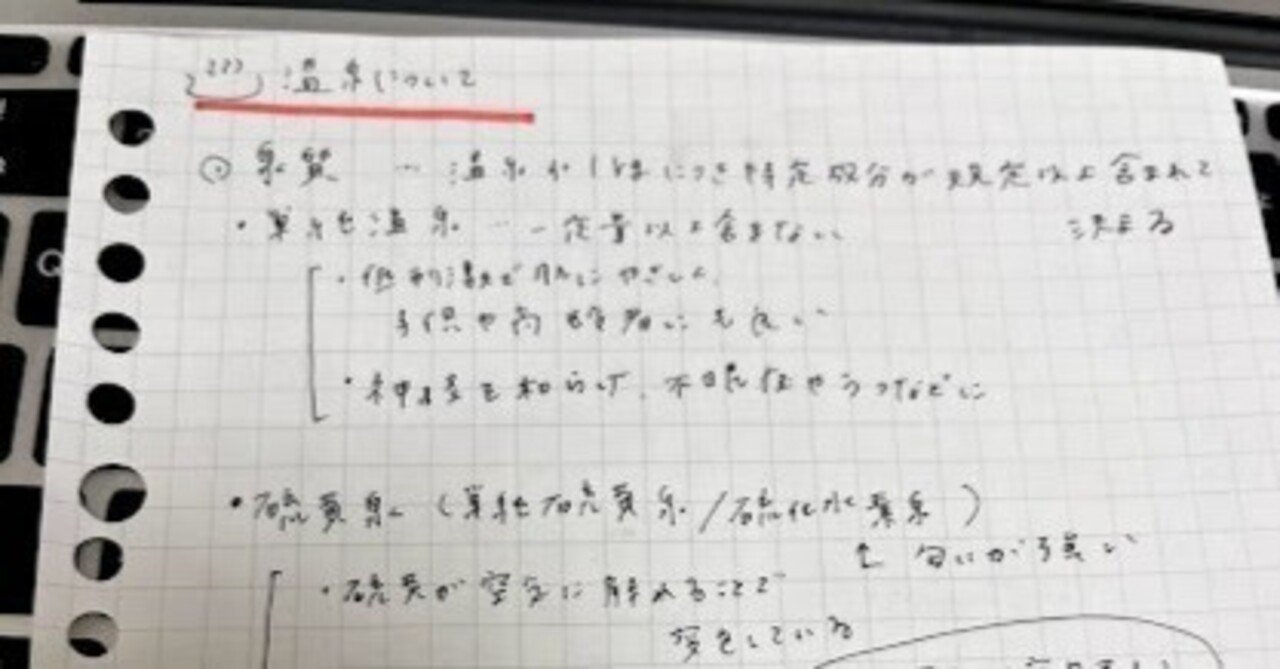 温泉について
泉質 … 温泉水1kgにつき特定成分が規定以上含まれて
決まる
・単純温泉 … 一定量以上含まない
・低刺激で肌にやさしく
子供や高齢者にも良い
・神経を和らげ、不眠症やうつなどに
・硫黄泉(単純硫黄泉/硫化水素泉)
↑匂いが強い
・硫黄が空気に触れることで
変色している